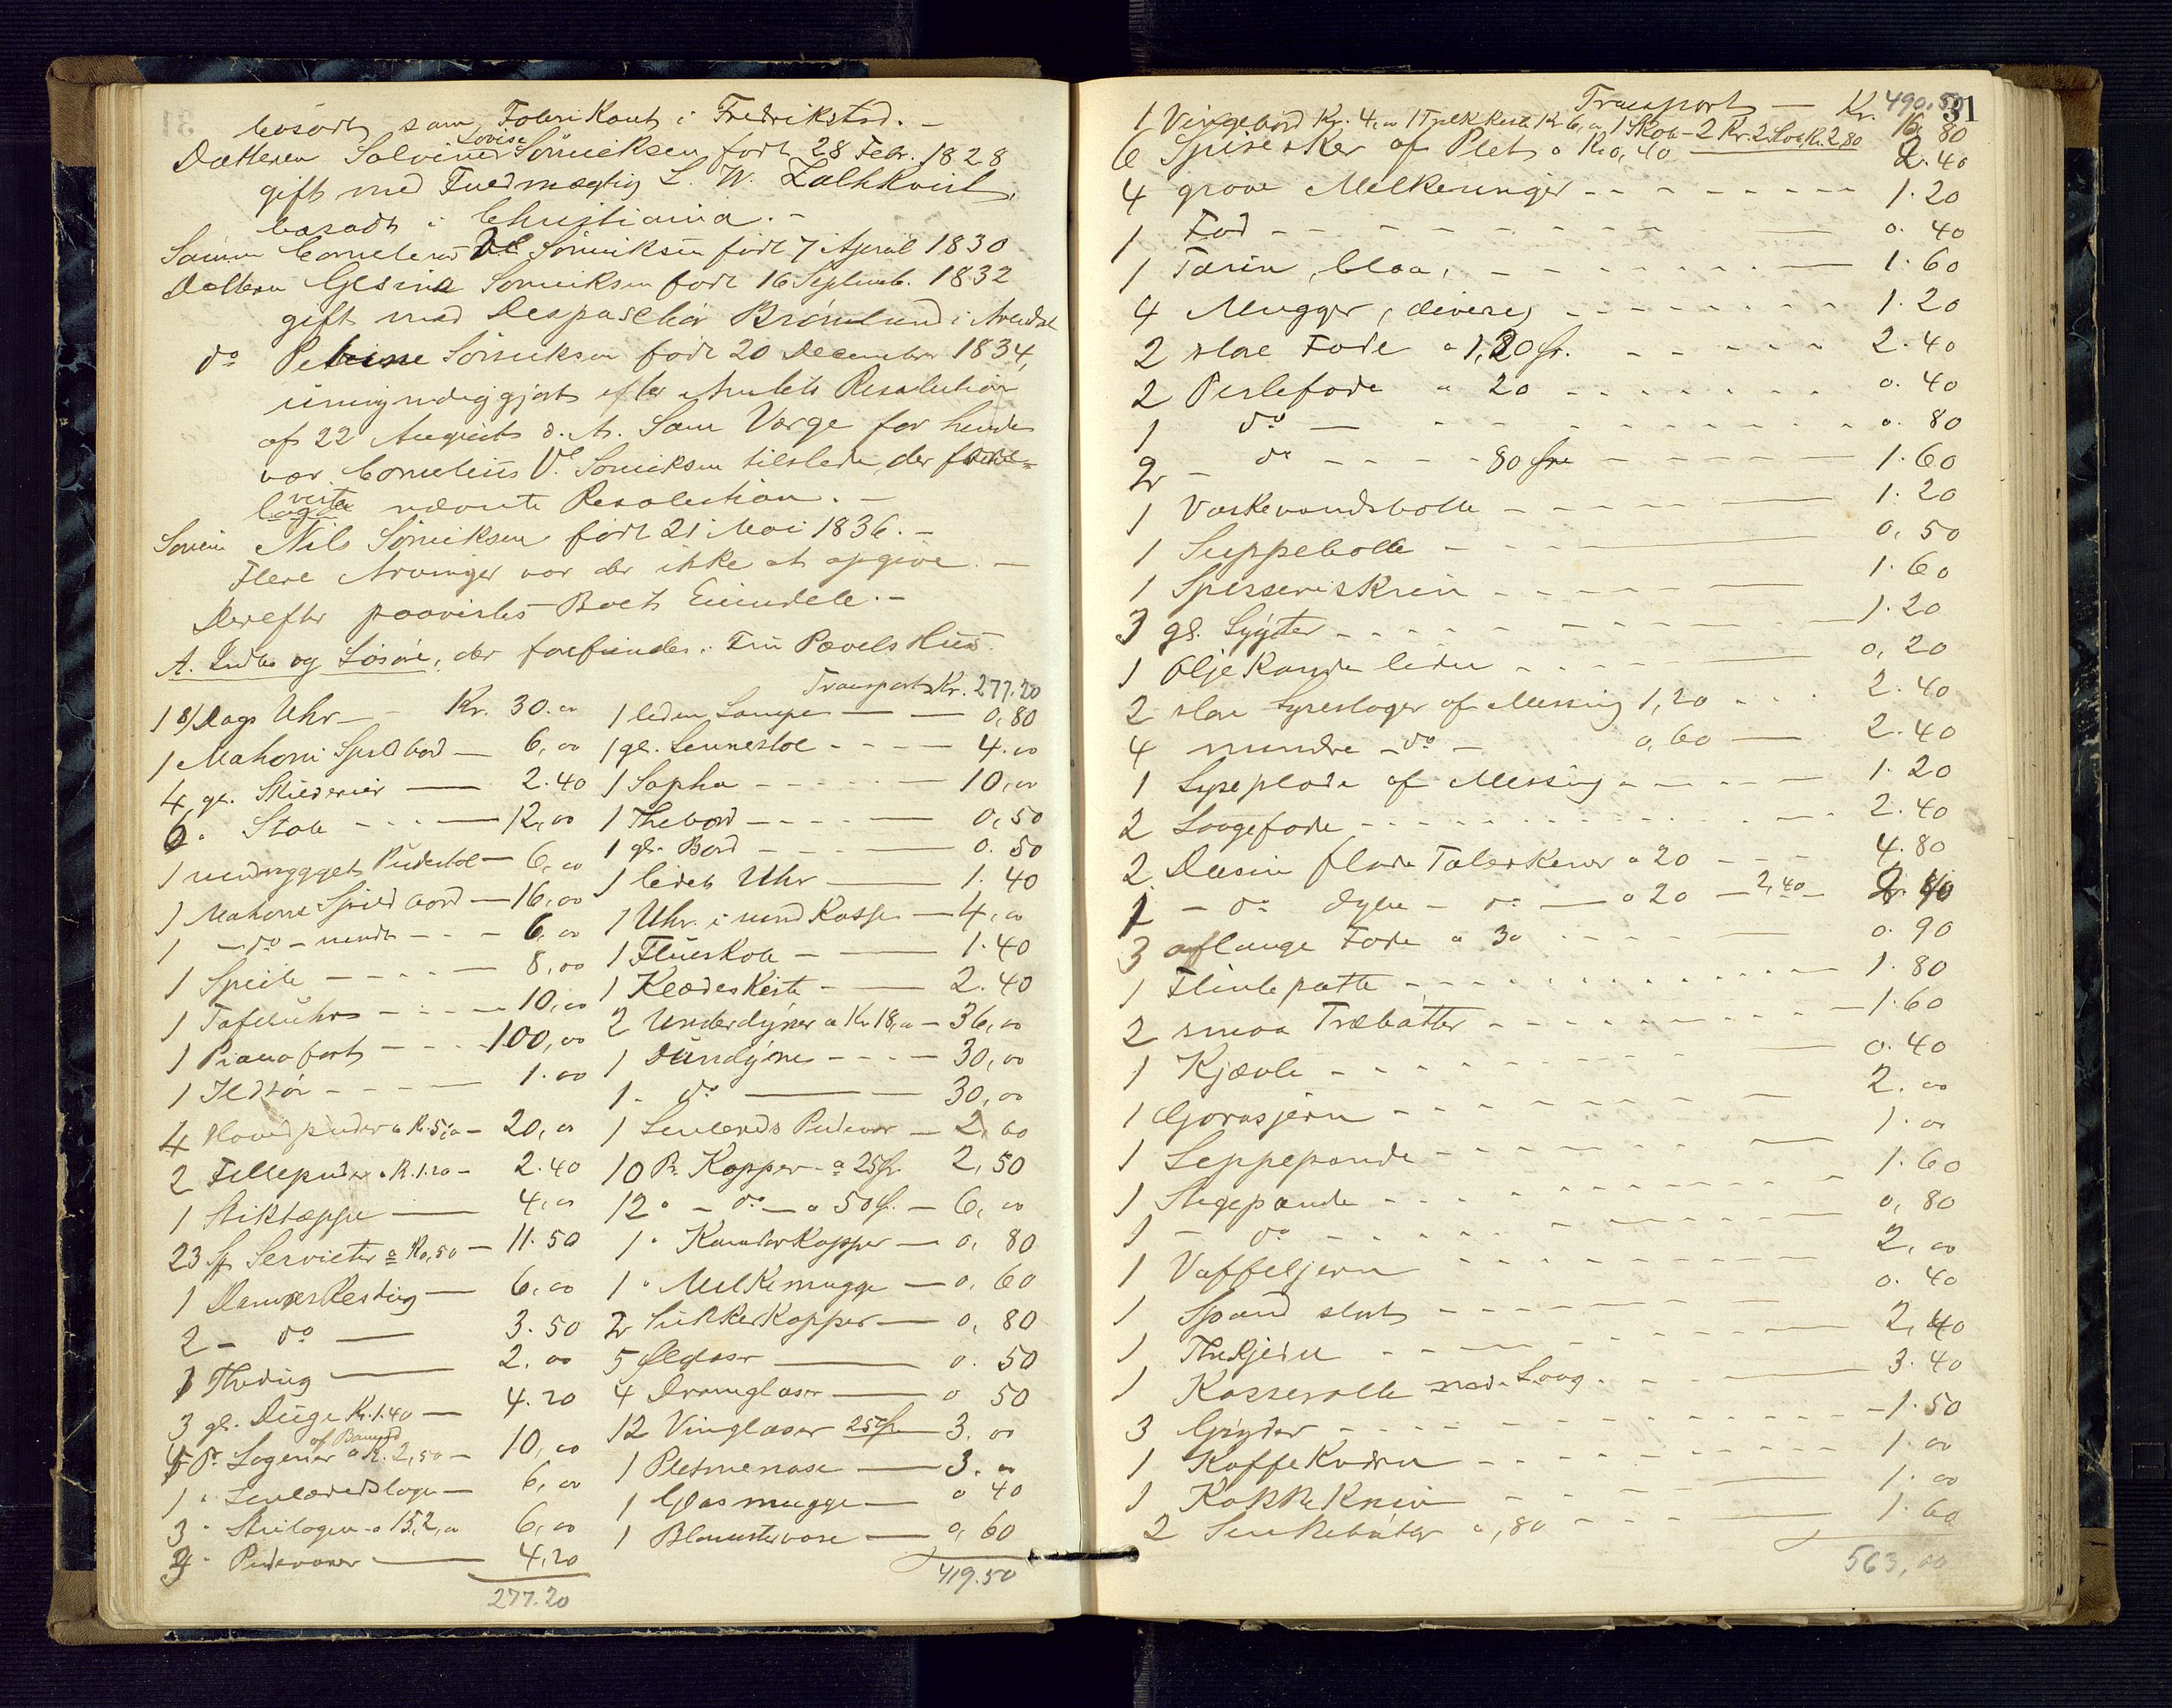 bosadt som Fabrikant i Fredrikstad. -
Datteren Salvine Lovise Sörnicksen født 28 Febr. 1828
gift med Fuldmægtig L. W.
bosadt i Christiania. -
Sønnen Cornelius Vl Sörnicksen født 7 April 1830
Datteren Gesine Sörnicksen født 16 Septemb. 1832
gift med Despaschör Brömlund i Arendal
do Petrine Sörnicksen født 20 December 1834,
umyndiggjort efter Amtets Resolution
af 22 August d. A. Som Værge for hende
var Cornelius Vl. Sörnicksen tilstede, der fore-
viste nævnte Resolution. -
Sønnen Nils Sörnicksen født 21 Mai 1836. -
Flere Arvinger var der ikke at opgive. -
Derefter paavistes Boets Eiendele. -
A. Indbo og Løsøre, der forefindes i Fru Pavels Hus.
1 8/Dags Uhr - Kr. 30.00
1 Mahoni Spildbord - 6,00
4 gl. Skilderier - 2.40
6 " Stole - 12,00
1 Pudestol - 6,00
1 Mahoni Spildbord - 16,00
1 - do - mindre - 6,00
1 Speile - 8,00
1 Tafeluhr - 10,00
1 Pianofort - 100,00
1 Ildtöi - 1.00
4 Hovedpuder a K. 5,00 - 20,00
2 Fillepuder a K. 1.20 - 2.40
1 Stiktæppe - 4,00
23 St Servietter a K0,50 - 11.50
1 Damaskesdug - 6,00
2 - do - 3.50
1 Thedug - 2.00
3 gl. Duge K. 1.40 - 4.20
4 Pr Lagener af Bomuld a K. 2,50 - 10,00
1 " Linlærredslagn - 6,00
3 " Strilagen a 2,00 6,00
" Pudevaaer - 4,20
277.20
Transport Kr. 277.20
1 liden Lampe - 0,80
1 gl. Lænestol - 4.00
1 Sopha - 10,00
1 Thebord - 0,50
1 gl. Bord - 0.50
1 lidet Uhr - 1.40
1 Uhr i rund Kasse - 4,00
1 Flueskab - 1.40
1 Klædeskiste - 2.40
2 Underdyner a Kr 18,00 - 36,00
1 Dundyne - 30,00
1 - do - 30,00
1 Linlerreds Pudevar - 2,60
10 Pr. Kopper a 25 ør. 2,50
12 " - do - a 50 ø. - 6,00
1 " Kumkopper - 0,80
1 " Melkemugge - 0,60
2 Sukkerkopper - 0,80
5 Ølglasse - 0.50
4 Dramglaser - 0 50
12 Vinglaser 25 ør - 3.00
1 Pletmenase - 3.00
1 Glasmugge - 0 40
1 Blomstervase - 0,60
419.50
31
Transport - Kr. 490.50
1 Vingebord Kr. 4,00 1 Trækkiste Kr 6,00 1 Skab - 2 Kr. 2 Stole K. 2,80 16 80
6 Spiseskeer af Plet a K0,40 - 2.40
4 grove Melkeringer - 1.20
1 Fad - 0.40
1 Tærin, blaa, - 1.60
4 Mugger, diverse, - 1.20
2 store Fade a 1,20 ør. - 2.40
2 Perlefade a 20 - 0.40
1 do - 0.80
2 - do - 80 øre - 1.60
1 Vaskevandsbolle - 1.20
1 Suppebolle - 0,50
1 Spesseriskrin - 1.60
3 gl. Lygter - 1.20
1 Oljekande liden - 0,20
2 store Lysestager af Messing 1,20 - 2.40
4 mindre - do - 0,60 - 2.40
1 Lyseplade af Messing - 1.20
2 Laagefade - 2.40
2 Dusin flade Talerkener a 20 - 4.80
1 - do dybe - do - a 20 - 2,40 - 2.40
3 aflange Fade a 30 - 0.90
1 Flintepotte - 1.80
2 smaa Træbøtter - 1.60
1 Kjævle - 0.40
1 Gorosjern - 2.00
1 Leppepande - 1.00
1 Stegepande - 1.60
1 - do - 0,80
1 Vaffeljern - 2,00
1 Spand slut - 0.40
1 Thekjedel - 2,40
1 Kasserolle med Laag - 3.40
3 Gryder - 1.50
1 Kaffekværn - 1.00
1 Kokkekniv - 1.00
2 0,80 - 1.60
563,00